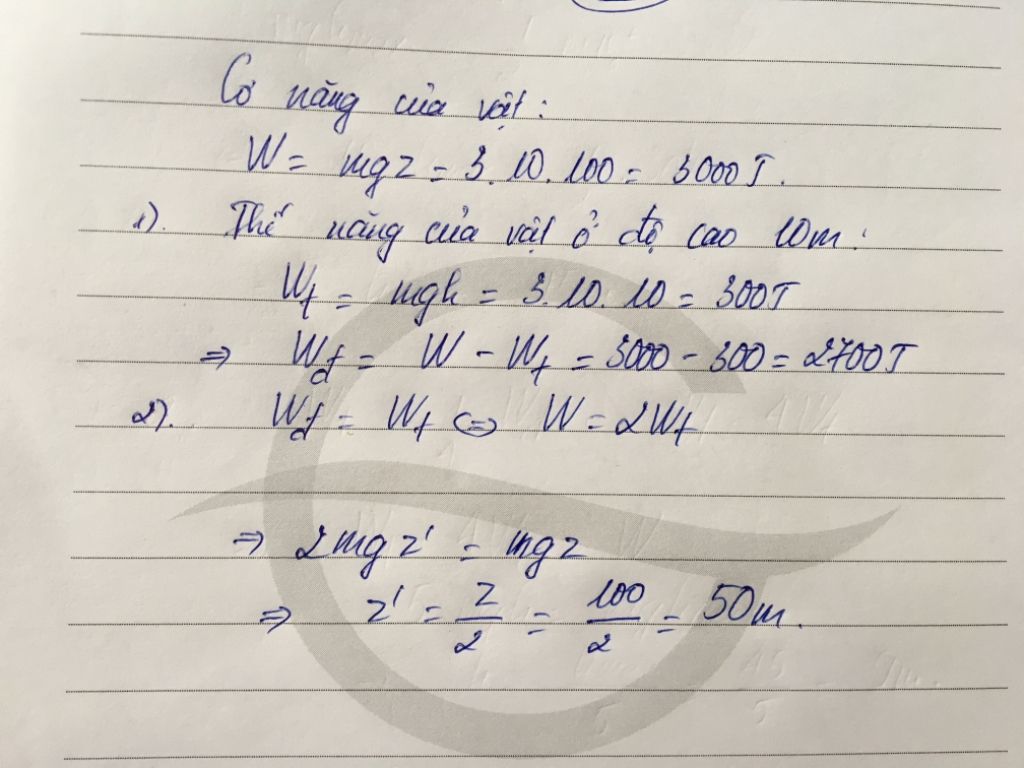 Cơ năng của vật:
W = mgz = 3.10.100 = 3000J.
1). Thế năng của vật ở độ cao 10m:
Wt = mgh = 3.10.10 = 300J
⇒ Wđ = W - Wt = 3000 - 300 = 2700J
2). Wđ = Wt ⇔ W = 2Wt
⇒ 2mgz' = mgz
⇒ z' = z/2 = 100/2 = 50m.